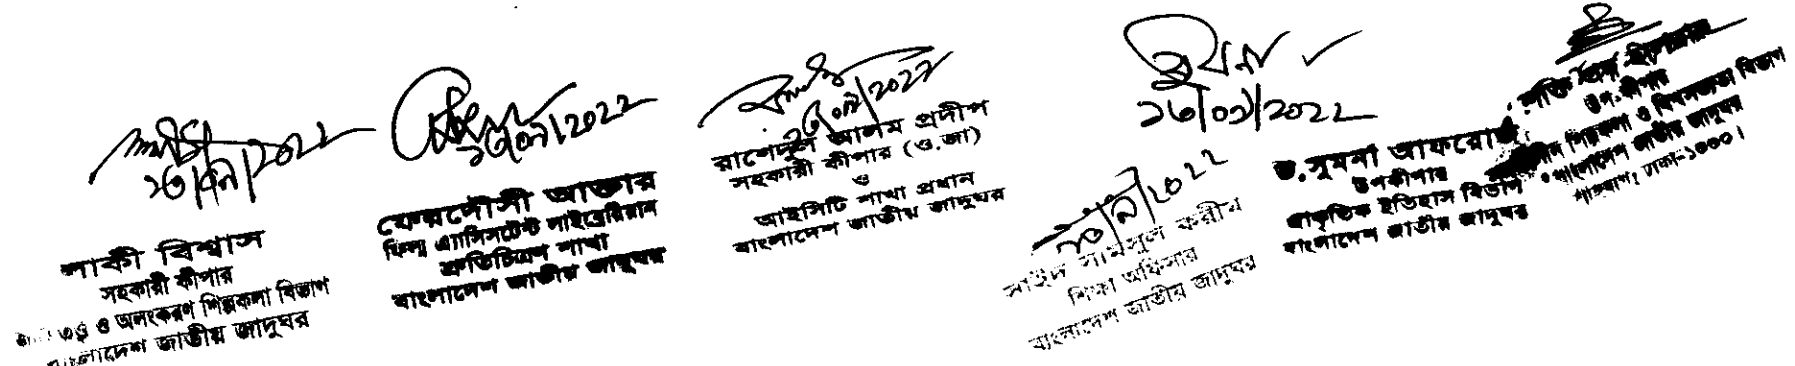 ১৩/০৯/2022
লাকী বিশ্বাস
সহকারী কীপার
ও অলংকরণ শিল্পকলা বিভাগ
বাংলাদেশ জাতীয় জাদুঘর
১৩/০৯/2022
ফেরদৌসী আক্তার
ফিল্ম এ্যাসিসটেন্ট লাইব্রেরিয়ান
শ্রুতিচিত্রণ শাখা
বাংলাদেশ জাতীয় জাদুঘর
১৩/০৯/2022
রাশেদুল আলম প্রদীপ
সহকারী কীপার (ও.জা)
ও
আইসিটি শাখা প্রধান
বাংলাদেশ জাতীয় জাদুঘর
১৩/০৯/2022
সাইদ সামসুল করীম
শিক্ষা অফিসার
বাংলাদেশ জাতীয় জাদুঘর
১৩/০৯/2022
ড. সুমনা আফরোজ
উপকীপার
প্রাকৃতিক ইতিহাস বিভাগ
বাংলাদেশ জাতীয় জাদুঘর
শক্তি
উপ-কীপার
শিল্পকলা ও বিশ্বসভ্যতা বিভাগ
বাংলাদেশ জাতীয় জাদুঘর
শাহবাগ, ঢাকা-১০০০।